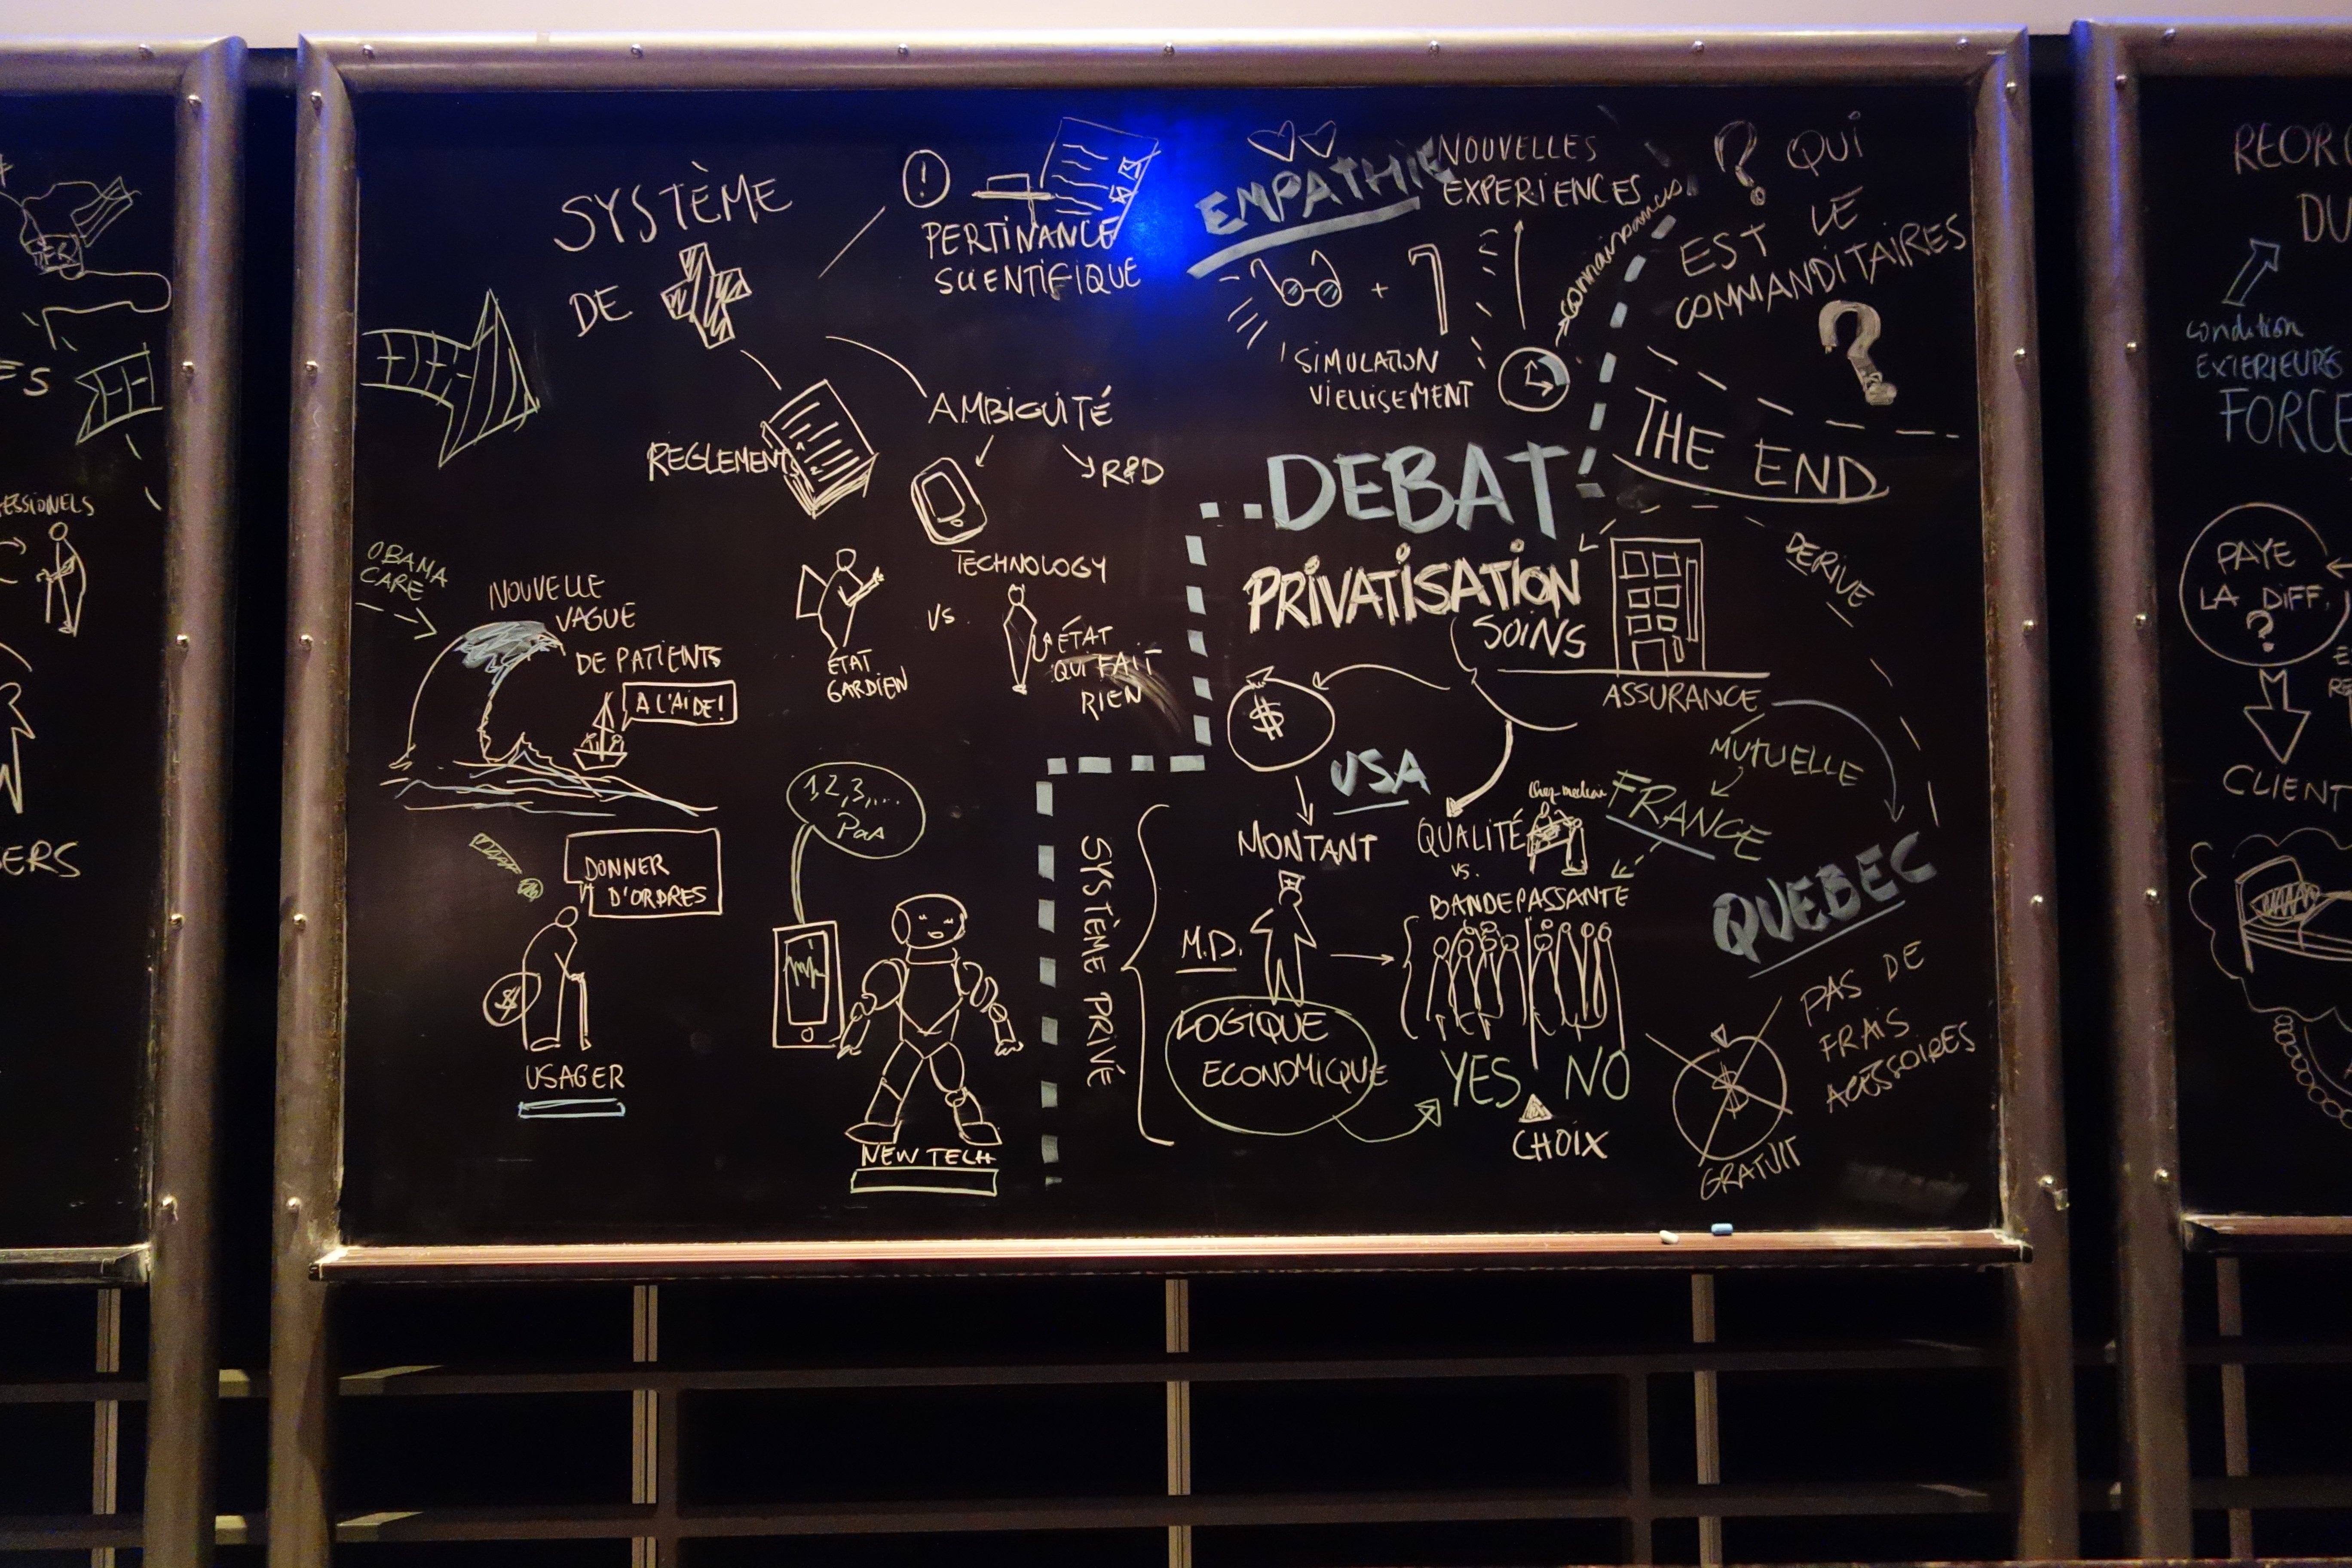 ESSIONELS
ERS
SYSTÈME
DE
!
PERTINANCE
SCIENTIFIQUE
REGLEMENT
AMBIGUITÉ
R&D
TECHNOLOGY
ETAT
GARDIEN
VS
ÉTAT
QUI FAIT
RIEN
OBAMA
CARE
NOUVELLE
VAGUE
DE PATIENTS
A L'AIDE!
DONNER
D'ORDRES
$
USAGER
1,2,3,...
Pas
NEW TECH
EMPATHIE
NOUVELLES
EXPERIENCES
+
SIMULATION
VIELLISEMENT
connaissances
? QUI
EST LE
COMMANDITAIRES
?
THE END
DEBAT
PRIVATISATION
SOINS
ASSURANCE
DERIVE
$
USA
MONTANT
MUTUELLE
FRANCE
QUALITÉ
VS.
BANDE PASSANTE
QUEBEC
SYSTÈME PRIVÉ
M.D.
LOGIQUE
ECONOMIQUE
YES NO
CHOIX
PAS DE
FRAIS
ACESSOIRES
$
GRATUIT
REOR
DU
condition
EXTERIEURES
FORCE
PAYE
LA DIFF.
?
CLIENT